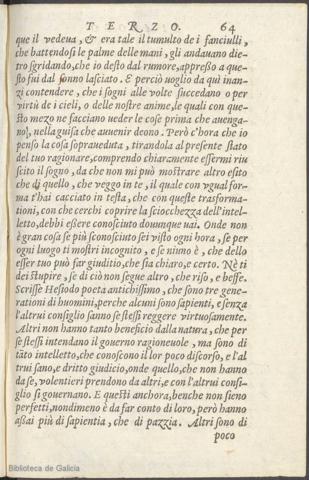 TERZO. 64
que il vedeua, & era tale il tumulto de i fanciulli,
che battendosi le palme delle mani, gli andauano die-
tro sgridando, che io desto dal rumore, appresso a que-
sto fui dal sonno lasciato. E perciò uoglio da quì inan-
zi contendere, che i sogni alle volte succedano o per
virtù de i cieli, o delle nostre anime, le quali con que-
sto mezo ne facciano ueder le cose prima che auenga-
no, nella guisa che auuenir deono. Però c'hora che io
penso la cosa soprauéduta, tirandola al presente stato
del tuo ragionare, comprendo chiaramente essermi riu
scito il sogno, da che non mi può mostrare altro esito
che di quello, che veggo in te, il quale con vgual for-
ma t'hai cacciato in testa, che con queste trasforma-
tioni, con che cerchi coprire la sciocchezza dell'intel-
letto, debbi essere conosciuto dounque uai. Onde non
è gran cosa se più sconosciuto sei visto ogni hora, se per
ogni luogo ti mostri incognito, e se niuno è, che dello
esser tuo può far giuditio, che sia chiaro, e certo. Nè ti
dei stupire, se di ciò non segue altro, che riso, e beffe.
Scrisse Hesiodo poeta antichissimo, che sono tre gene-
rationi di huomini, perche alcuni sono sapienti, e senza
l'altrui consiglio sanno se stessi reggere virtuosamente.
Altri non hanno tanto beneficio dalla natura, che per
se stessi intendano il gouerno ragioneuole, ma sono di
tāto intelletto, che conoscono il lor poco discorso, e l'al
trui sano, e dritto giudicio, onde quello, che non hanno
da se, volentieri prendono da altri, e con l'altrui consi-
glio si gouernano. E questi anchora, benche non sieno
perfetti, nondimeno è da far conto di loro, però hanno
assai più di sapientia, che di pazzia. Altri sono di
poco
Biblioteca de Galicia